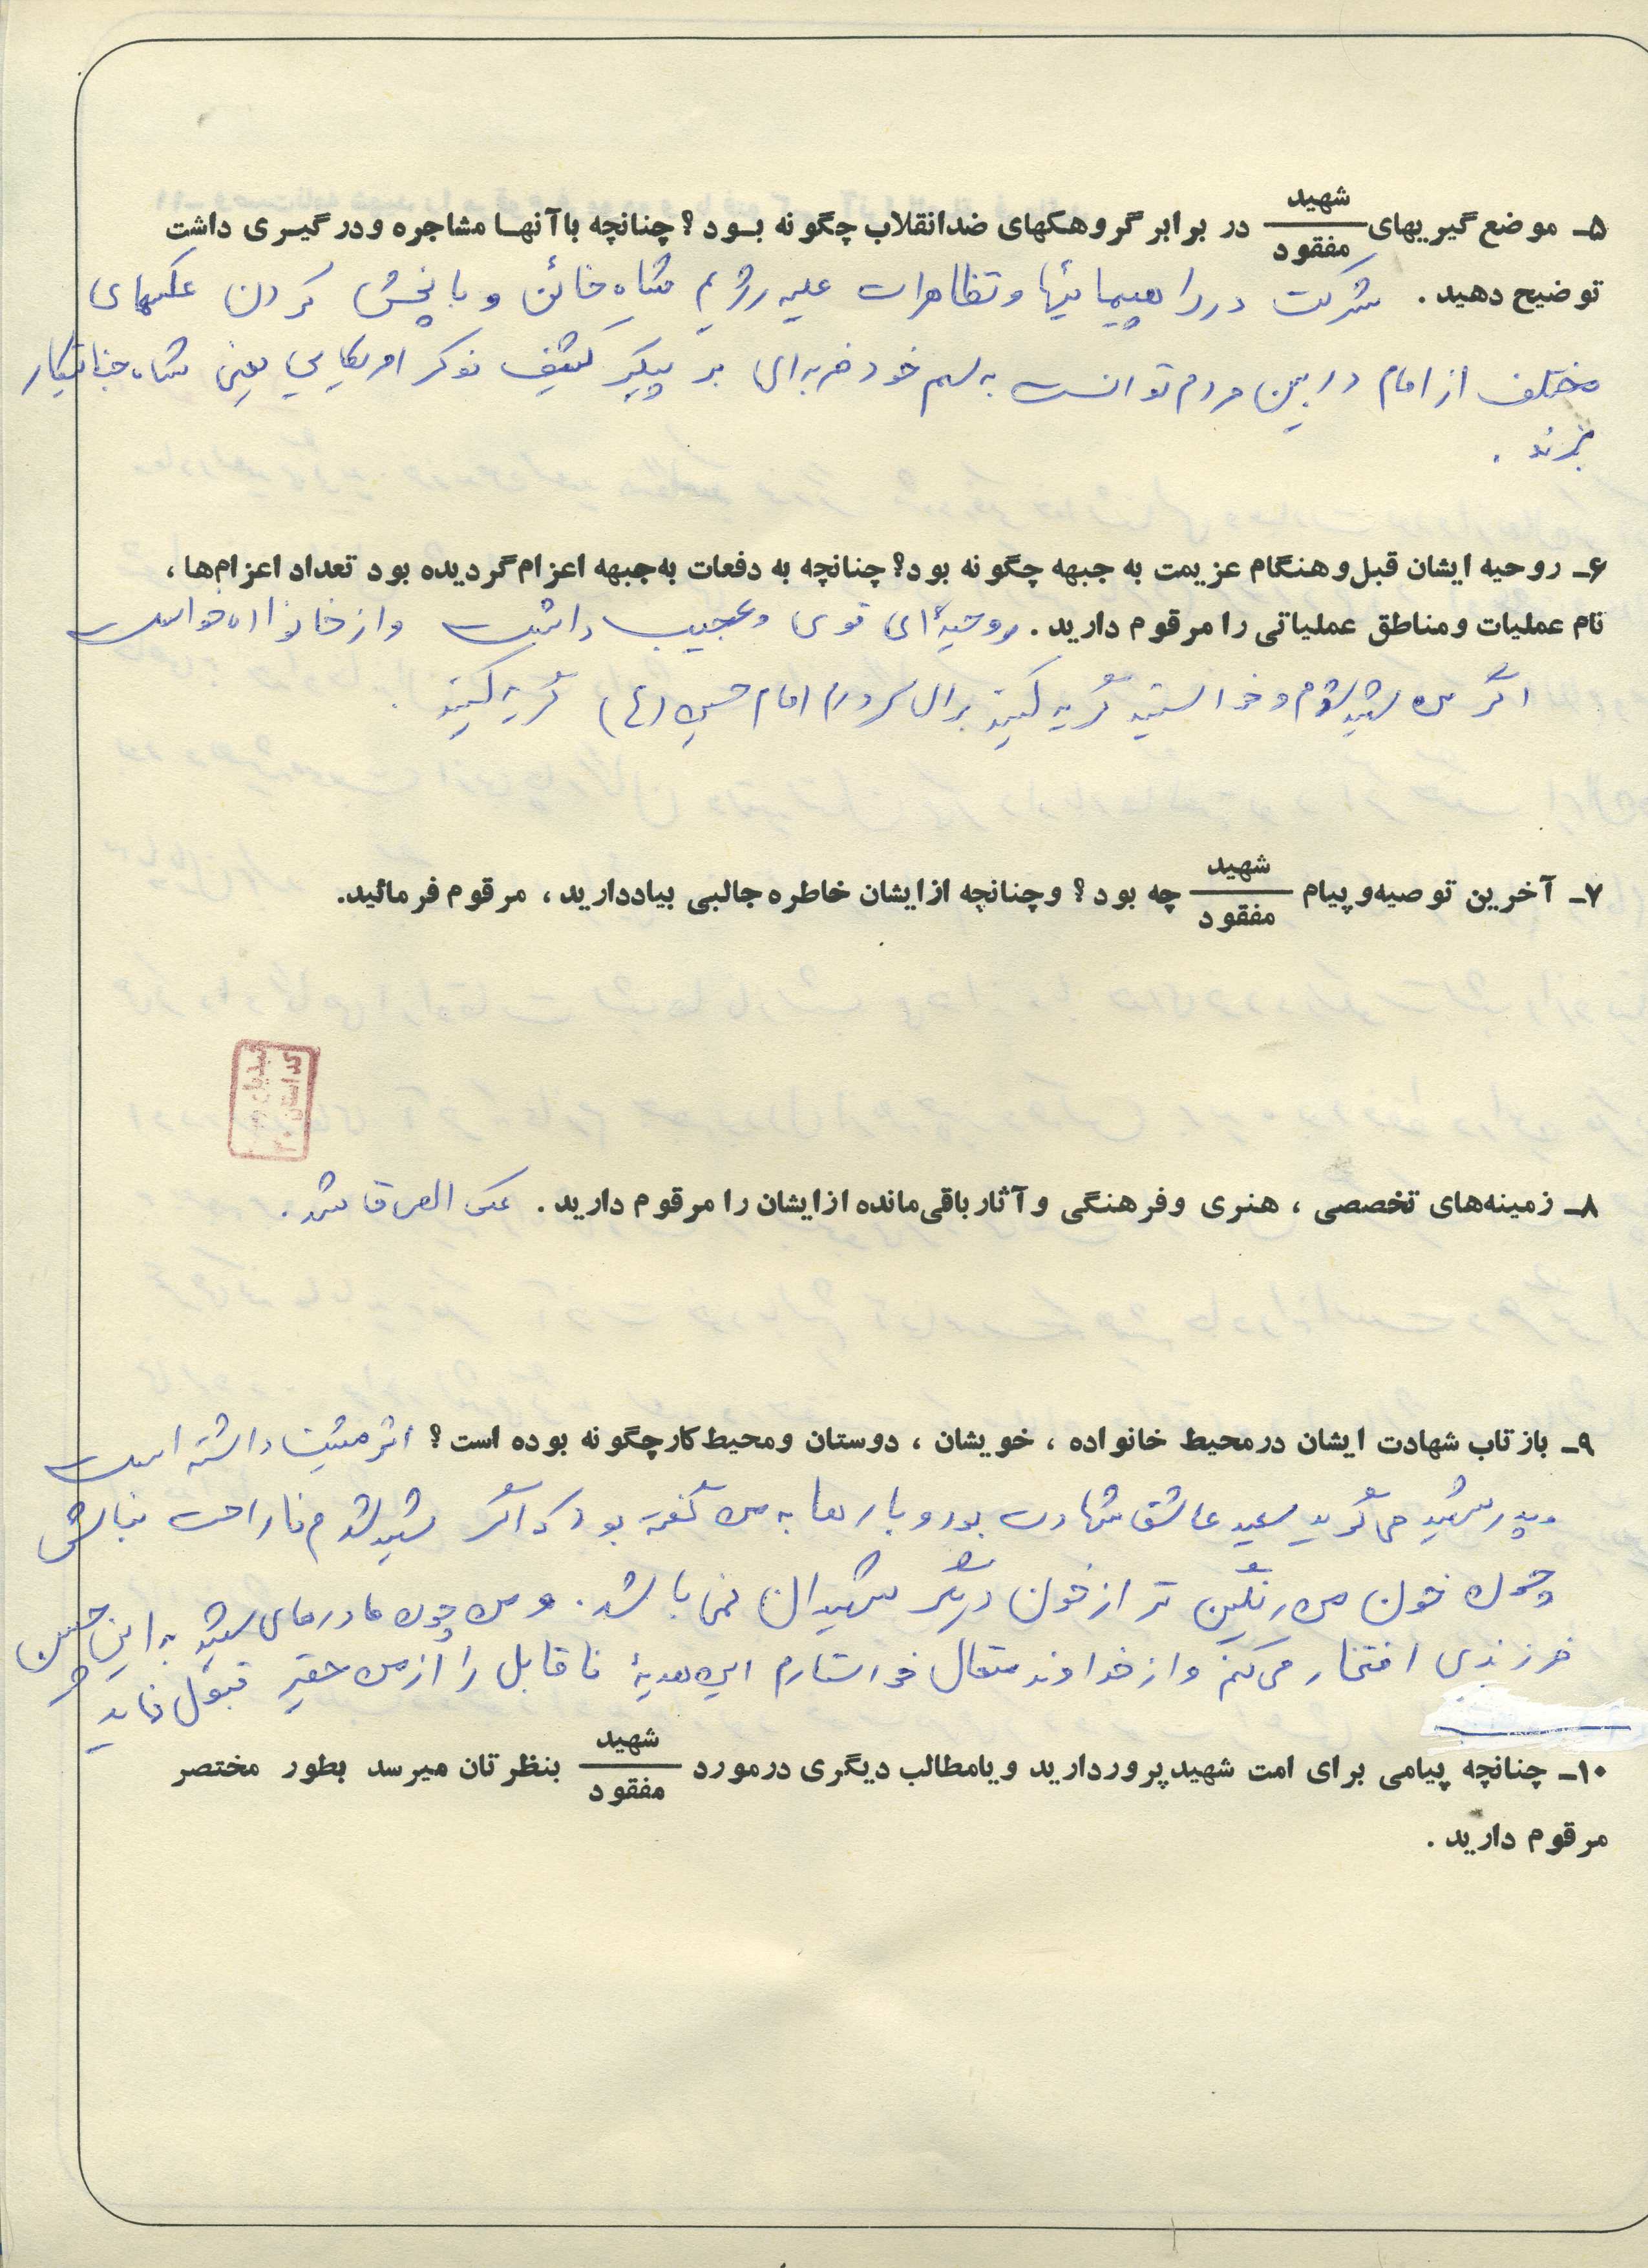 ۵ـ موضع گیریهای شهید / مفقود در برابر گروهکهای ضدانقلاب چگونه بود؟ چنانچه باآنها مشاجره ودرگیری داشت
توضیح دهید. شرکت در راهپیمائیها و تظاهرات علیه رژیم شاه خائن و با پخش کردن عکسهای
مختلف از امام در بین مردم توانست به سهم خود ضربه‌ای بر پیکر کثیف نوکر امریکایی یعنی شاه جنایتکار
بزند.
۶ـ روحیه ایشان قبل وهنگام عزیمت به جبهه چگونه بود؟ چنانچه به دفعات به جبهه اعزام گردیده بود تعداد اعزام‌ها،
نام عملیات ومناطق عملیاتی را مرقوم دارید. روحیهٔ ای قوی و عجیب داشت و از خانواده خواست
اگر من شهید شدم و خواستید گریه کنید برای سرورم امام حسین (ع) گریه کنید.
۷ـ آخرین توصیه وپیام شهید / مفقود چه بود؟ وچنانچه ازایشان خاطره جالبی بیاددارید، مرقوم فرمائید.
۸ـ زمینه‌های تخصصی، هنری وفرهنگی وآثار باقی‌مانده ازایشان را مرقوم دارید. عکس الصاق شد.
۹ـ بازتاب شهادت ایشان درمحیط خانواده، خویشان، دوستان ومحیط کار چگونه بوده است؟ اثر مثبت داشته است
و پدر شهید می گوید سعید عاشق شهادت بود و بارها به من گفته بود که اگر شهید شدم ناراحت نباش
چون خون من رنگین تر از خون دیگر شهیدان نمی باشد. و من چون مادرهای شهید به این چنین
فرزندی افتخار می کنم و از خداوند متعال خواستارم این هدیهٔ ناقابل را از من حقیر قبول نماید
۱۰ـ چنانچه پیامی برای امت شهیدپرور دارید ویامطالب دیگری درمورد شهید / مفقود بنظرتان میرسد بطور مختصر
مرقوم دارید.